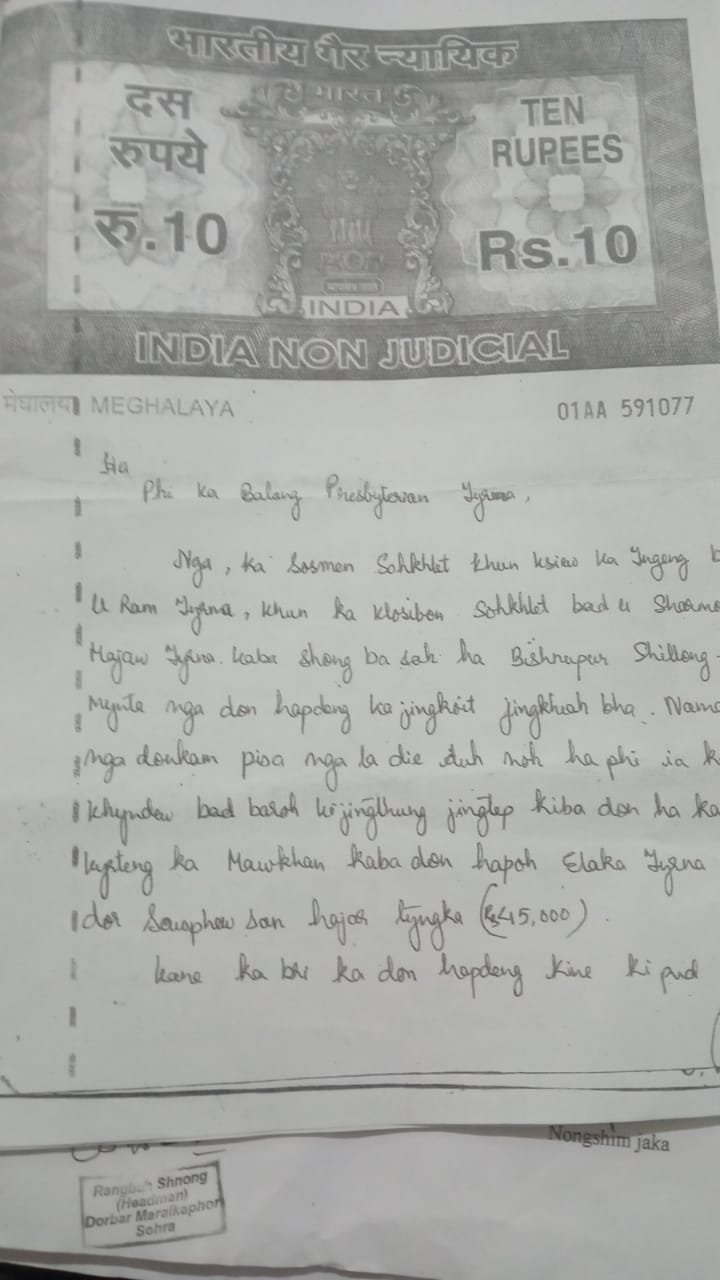 भारतीय गैर न्यायिक
भारत
दस
रुपये
रु.10
TEN
RUPEES
Rs.10
INDIA
INDIA NON JUDICIAL
मेघालय MEGHALAYA
01AA 591077
Ha
Phi ka Balang Presbyterian Tyrna,
Nga, ka Sosmen Sohkhlet khun ksiew ka Jngeng b
U Ram Tyrna, khun ka Klosibon Sohkhlet bad u Sharmo
Majaw Tyrna. kaba shong ba sah ha Bishnapur Shillong -
Mynta nga don hapdeng ka jingkoit jingkhiah bha. Namo
nga donkam pisa nga la die duh noh ha phi ia k
khyndew bad baroh ki jingthung jingtep kiba don ha ka
kyrteng ka Mawkhan kaba don hapoh Elaka Tyrna
dor Sawphew san hajar tyngka (Rs 45,000).
kane ka bri ka don hapdeng kine ki pud
Nongshim jaka
Rangbah Shnong
(Headman)
Dorbar Maraikaphon
Sohra